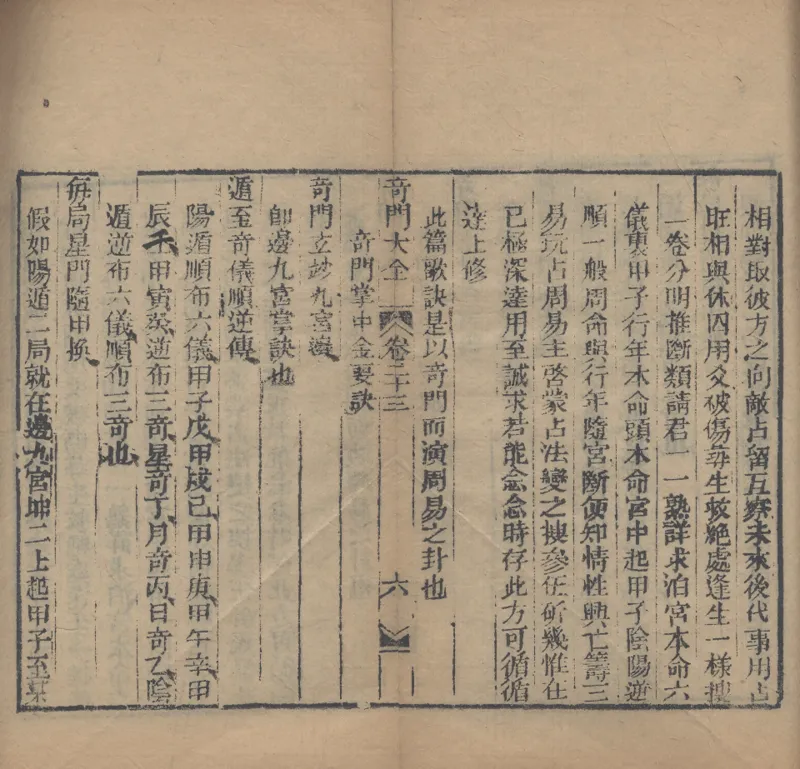 相對取彼方之向敵占留互察未來後代事用占
旺相與休囚用爻破傷尋生救絕處逢生一樣搜
一卷分明推斷類請君一一熟詳求泊宮本命六
儀裏甲子行年木命頭本命宮中起甲子陰陽逆
順一般周命與行年隨宮斷便知情性興亡籌三
易玩占周易主啓蒙占法變之捜參伍研幾惟在
已極深達用至誠求若能念念時存此方可循循
達上修
此篇歌訣是以奇門而演周易之卦也
奇門大全 卷二十三 六
奇門掌中金要訣
奇門玄妙九宮邊
卽邊九宮掌訣也
遁至奇儀順逆傳
陽遁順布六儀甲子戊甲戌己甲申庚甲午辛甲
辰壬甲寅癸逆布三奇星奇丁月奇丙日奇乙陰
遁逆布六儀順布三奇也
每局星門隨甲換
假如陽遁二局就在邊九宮坤二上起甲子至某